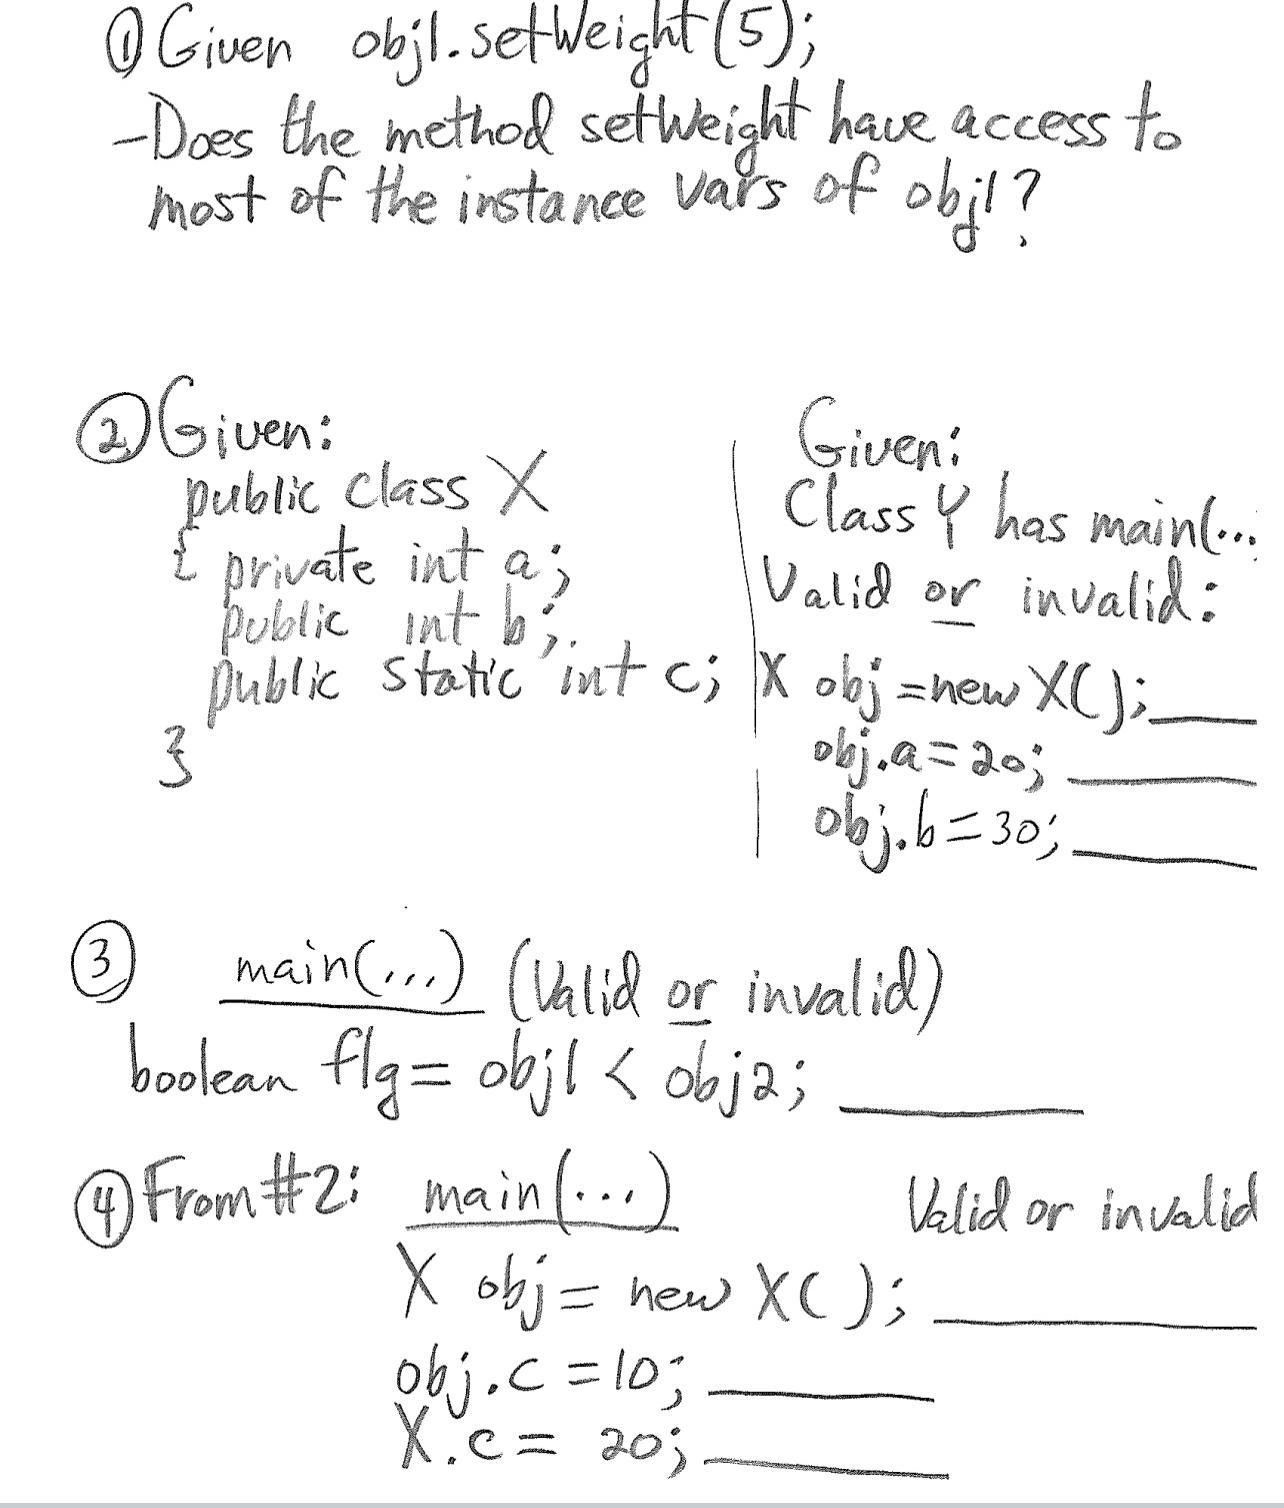 ① Given obj1.setWeight(5);
-Does the method setWeight have access to
most of the instance vars of obj1?
② Given:
public class X
{ private int a;
public int b;
public static int c;
}
Given:
Class Y has main(...
Valid or invalid:
X obj = new X(); ____
obj.a = 20; ____
obj.b = 30; ____
③ main(...) (Valid or invalid)
boolean flg = obj1 < obj2; ____
④ From #2: main(...) Valid or invalid
X obj = new X( ); ____
obj.c = 10; ____
X.c = 20; ____